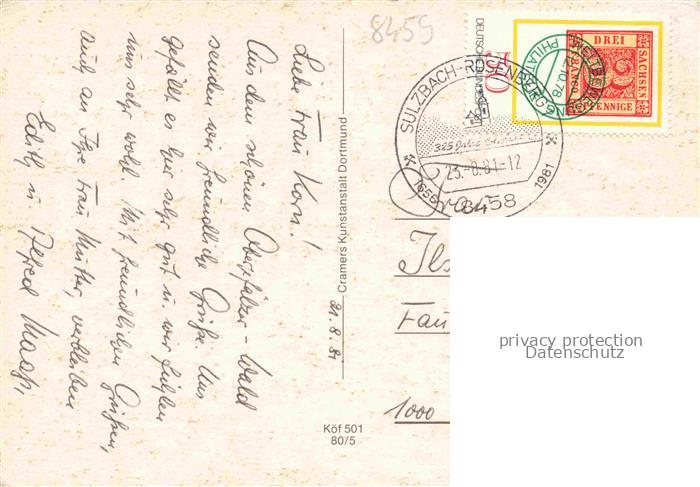 8459
Liebe Frau Korn!
Aus dem schönen Oberpfälzer-Wald
senden wir freundliche Grüße. Uns
gefällt es hier sehr gut u. wir fühlen
uns sehr wohl. Mit freundlichen Grüßen,
auch an Ihre Frau Mutter, verbleiben
Edith u. Alfred
21.8.81
Cramers Kunstanstalt Dortmund
Köf 501
80/5
SULZBACH-ROSENBERG
325 Jahre
23.-8.81-12
1656
1981
8458
DREI
PFENNIGE
SACHSEN
FRANCO
3
DEUTSCHE BUNDESPOST
Frau
Ils
1000
privacy protection
Datenschutz